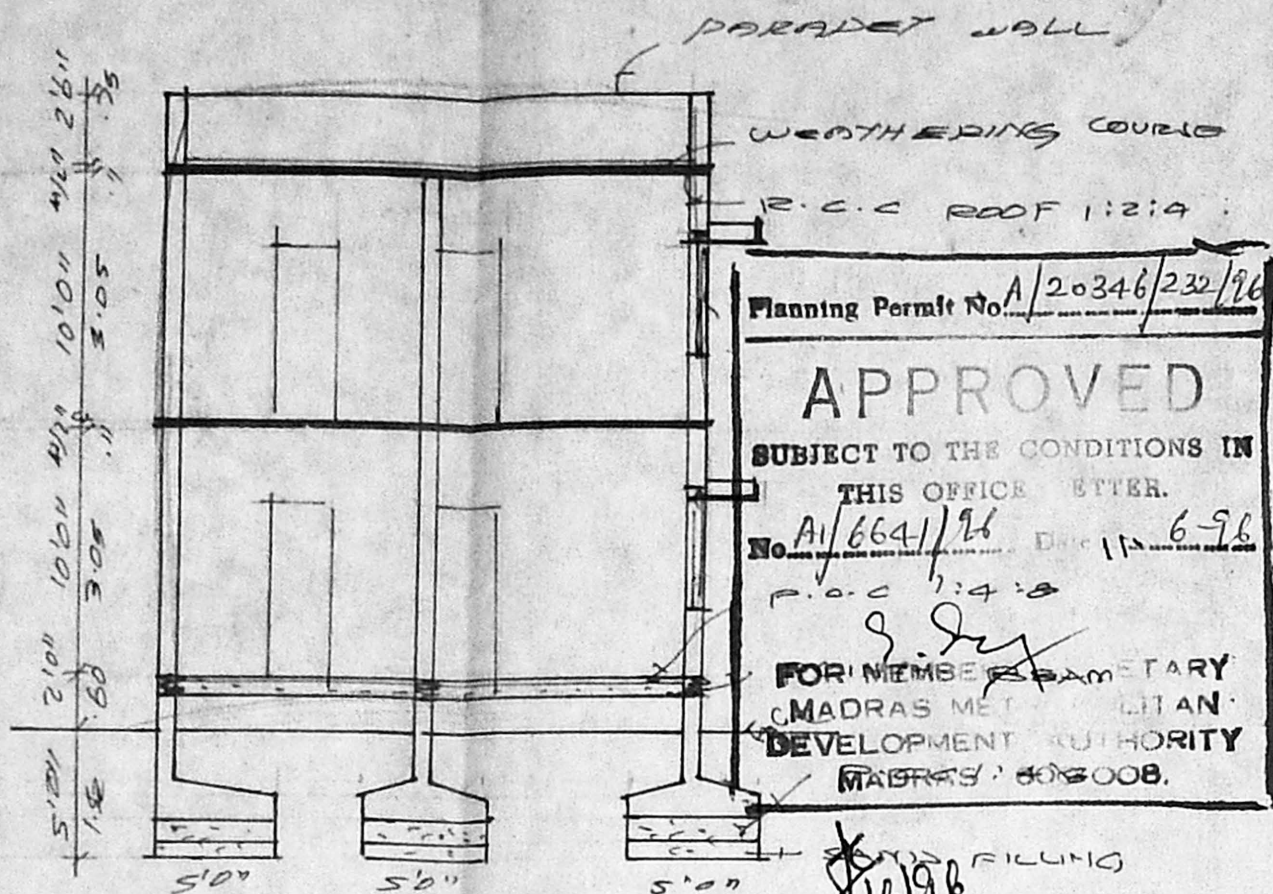 PARAPET WALL
WEATHERING COURSE
R.C.C ROOF 1:2:4
Planning Permit No. A/20346/232/96
APPROVED
SUBJECT TO THE CONDITIONS IN
THIS OFFICE ETTER.
No. A1/6641/96 Date 6-96
P.C.C 1:4:8
FOR MEMBE ETARY
MADRAS MET LITAN
DEVELOPMENT AUTHORITY
MADRAS
SAND FILLING
2'6"
.75
4½"
.11
10'0"
3.05
4½"
.11
10'0"
3.05
2'0"
.60
5'0"
5'0"
5'0"
5'0"